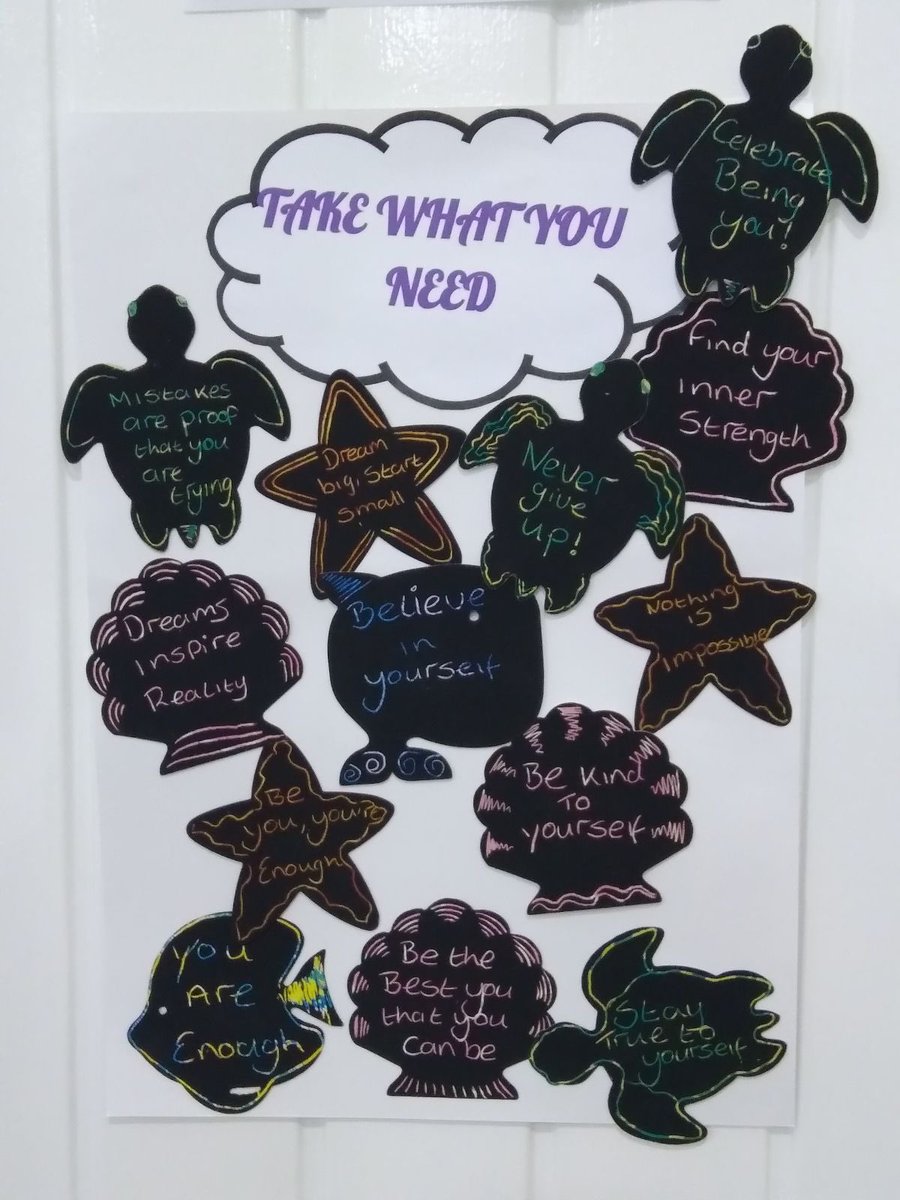 TAKE WHAT YOU
NEED
Celebrate
Being
you!
Find your
inner
Strength
Mistakes
are proof
that you
are
trying
Dream
big, Start
Small
Never
give
up!
Dreams
Inspire
Reality
Believe
in
yourself
Nothing
is
impossible
Be
you, you're
Enough
Be Kind
To
yourself
You
Are
Enough
Be the
Best you
that you
can be
Stay
True to
yourself